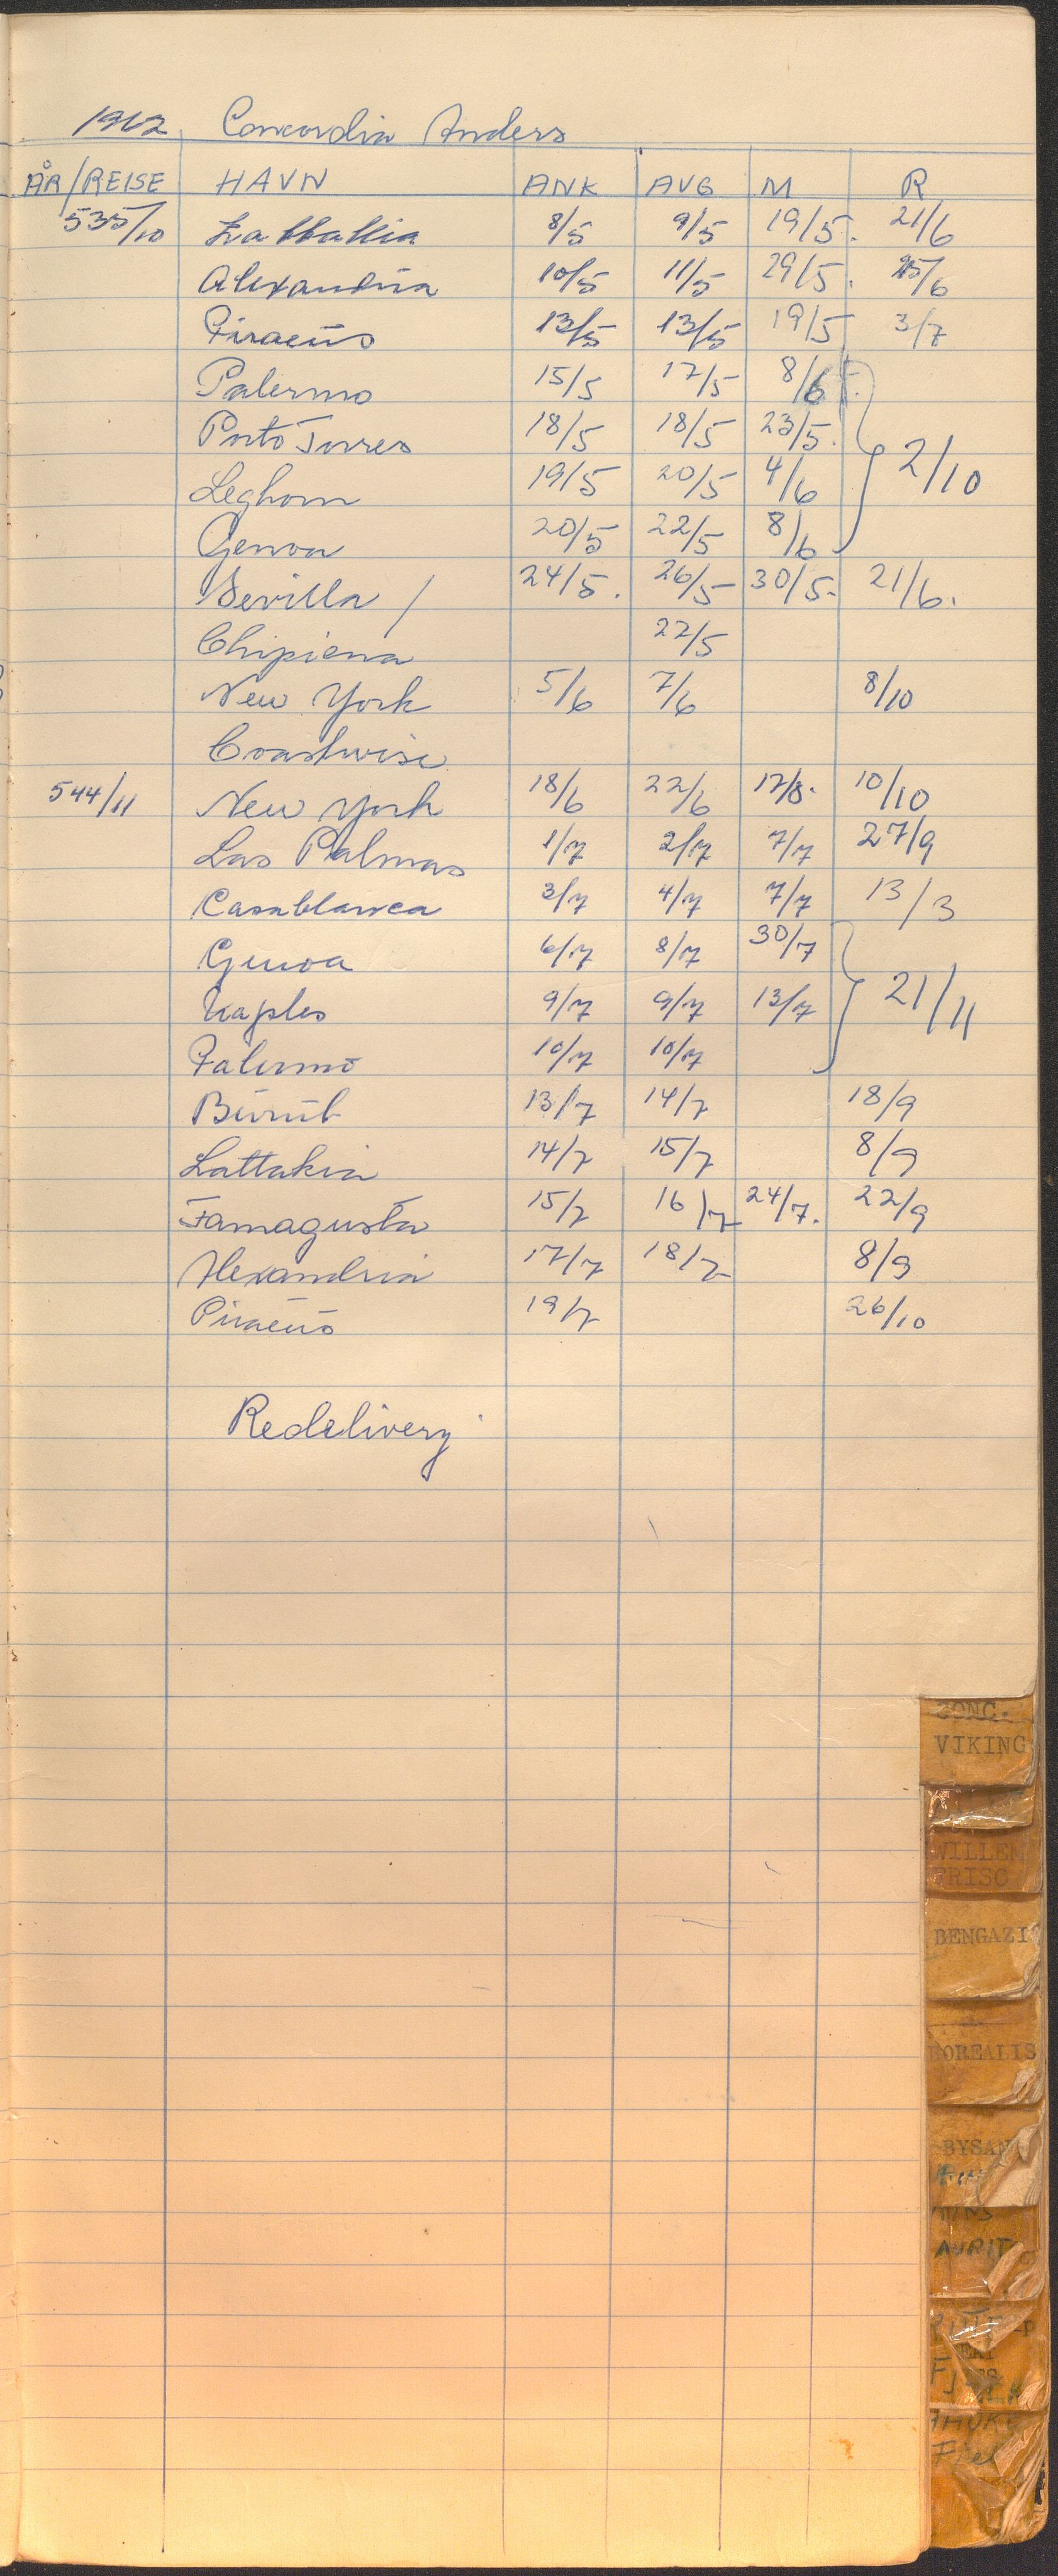 1962 Concordia Anders
ÅR/REISE HAVN ANK AVG M R
535/10 Lattakia 8/5 9/5 19/5. 21/6
Alexandria 10/5 11/5 29/5. 25/6
Piraeus 13/5 13/5 19/5 3/7
Palermo 15/5 17/5 8/6
Porto Torres 18/5 18/5 23/5.
Leghorn 19/5 20/5 4/6 2/10
Genoa 20/5 22/5 8/6
Sevilla / 24/5. 26/5 30/5. 21/6.
Chipiena 27/5
New York 5/6 7/6 8/10
Coastwise
544/11 New York 18/6 22/6 17/8. 10/10
Las Palmas 1/7 2/7 7/7 27/9
Casablanca 3/7 4/7 7/7 13/3
Genoa 6/7 8/7 30/7
Naples 9/7 9/7 13/7 21/11
Palermo 10/7 10/7
Beirut 13/7 14/7 18/9
Lattakia 14/7 15/7 8/9
Famagusta 15/7 16/7 24/7. 22/9
Alexandria 17/7 18/7 8/9
Piraeus 19/7 26/10
Redelivery
CONC.
VIKING
WILLEM
FRISO
BENGAZI
BOREALIS
BYSAN